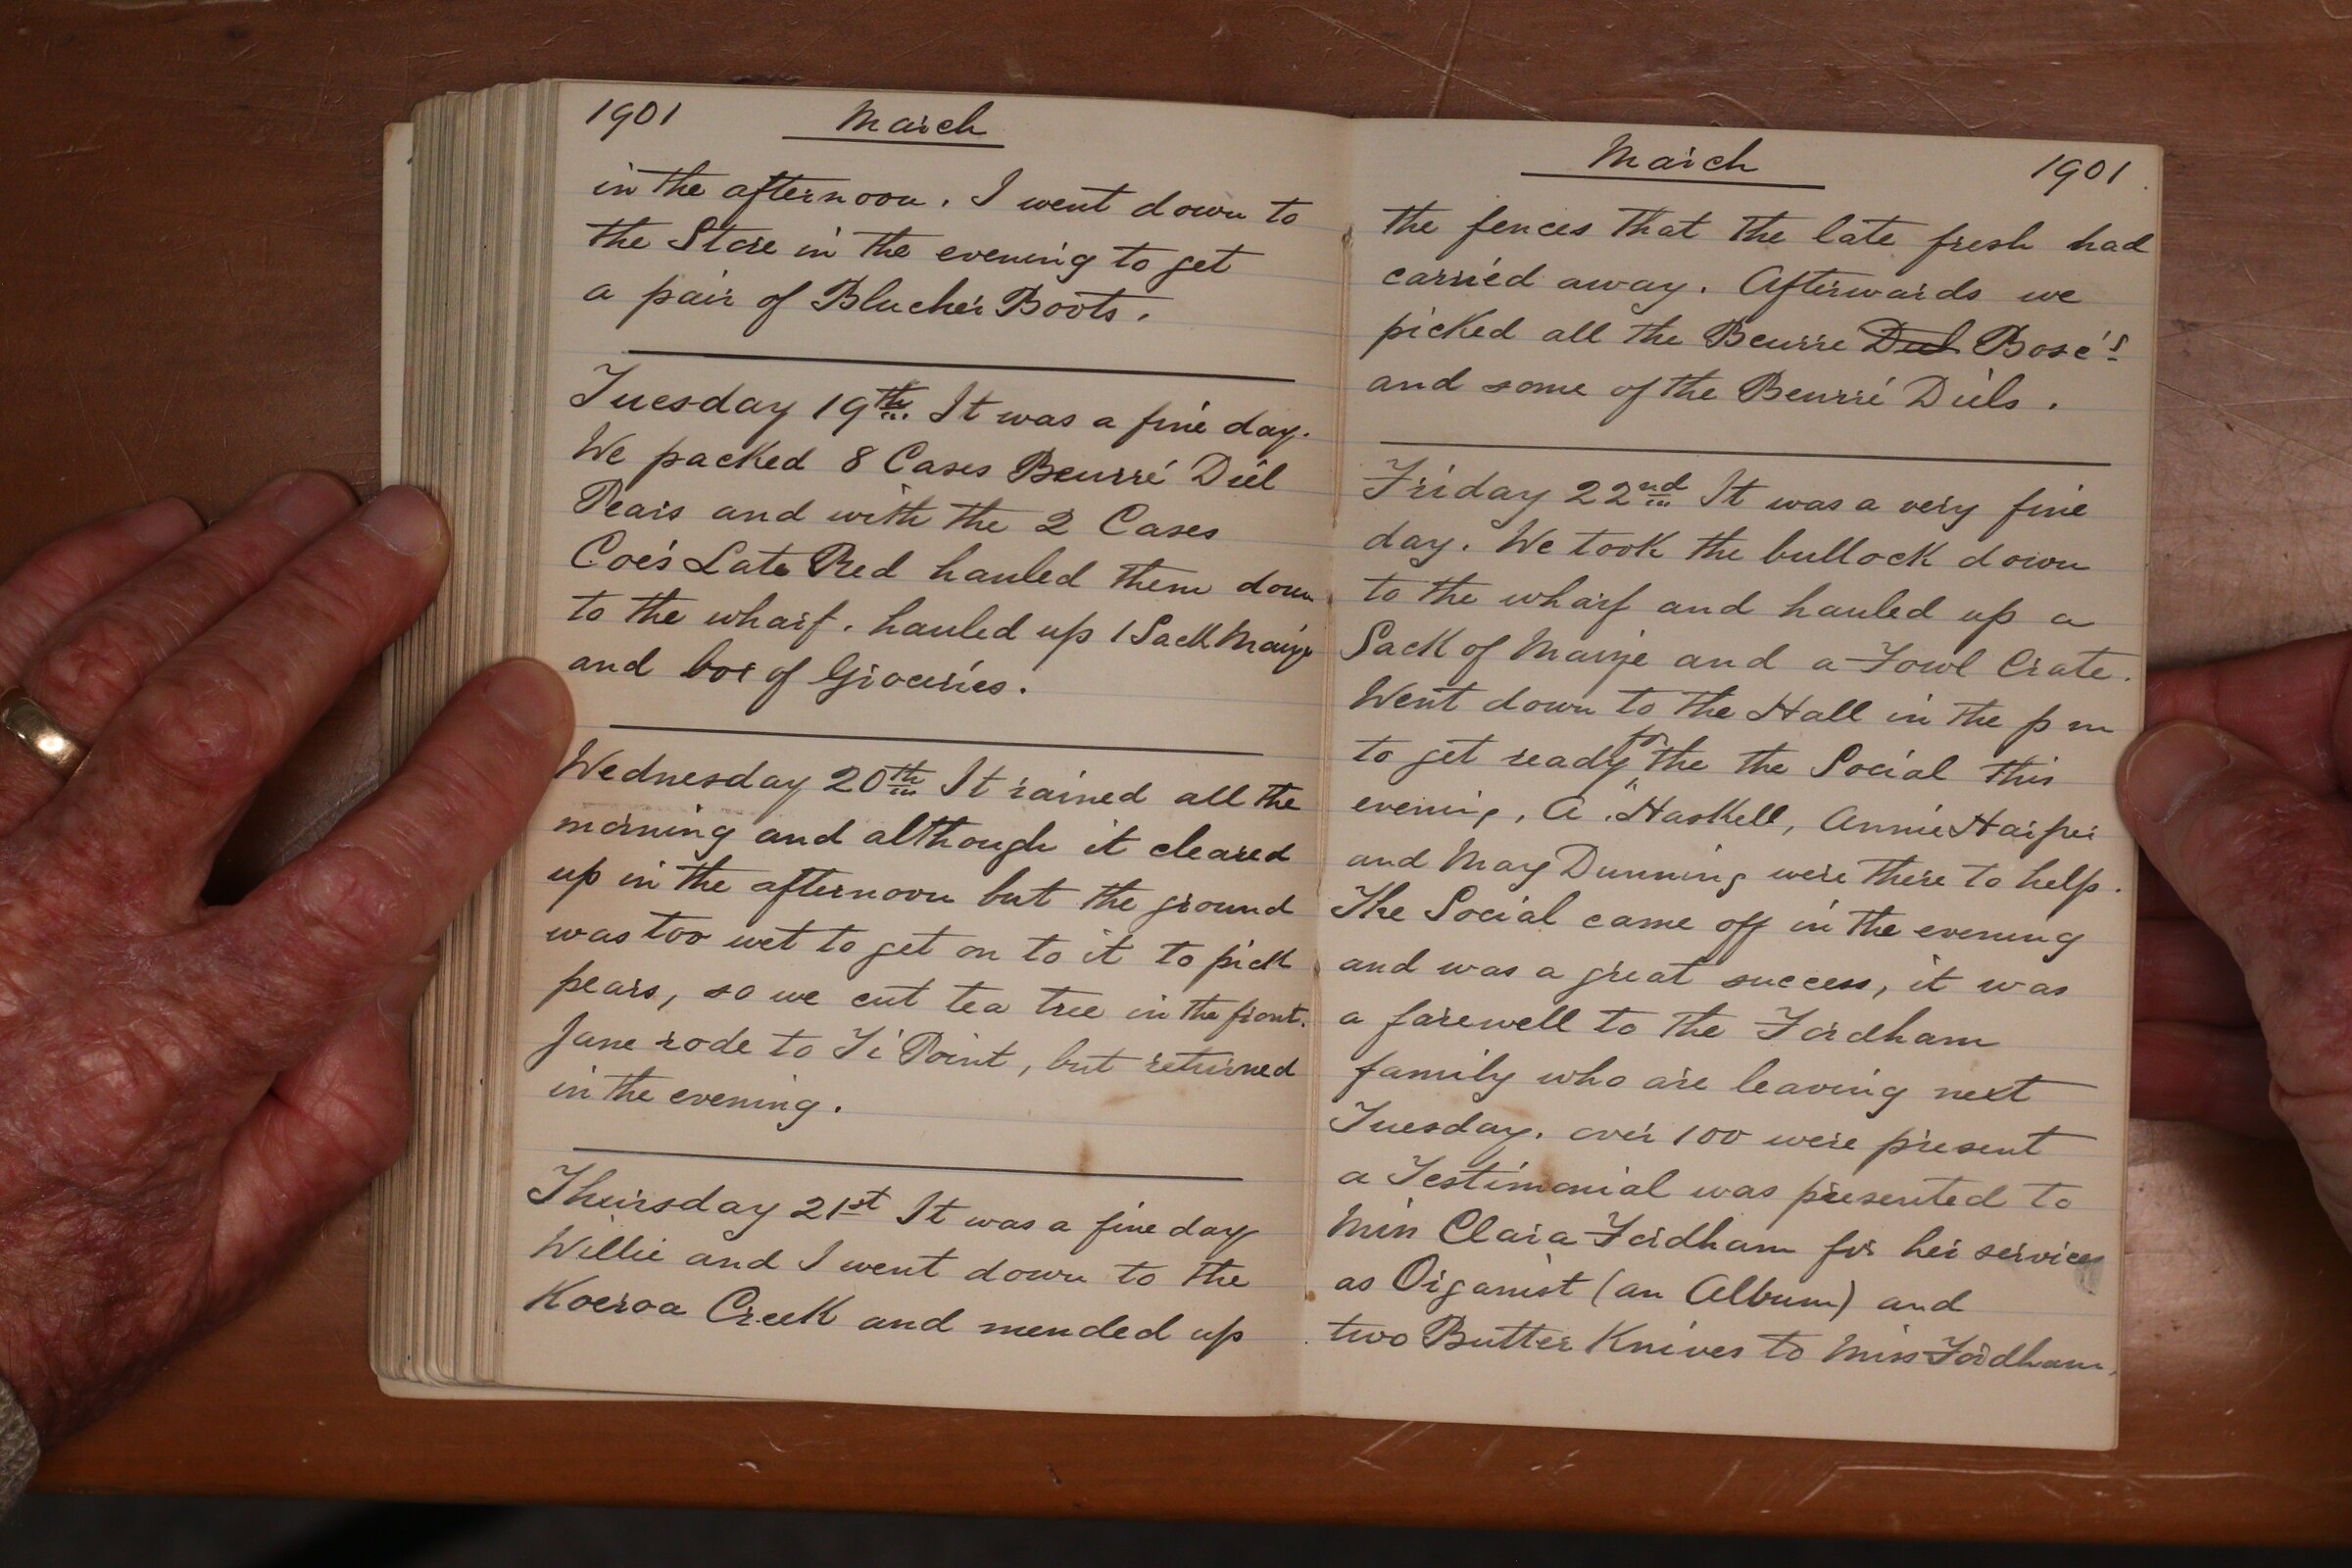 1901 March
in the afternoon. I went down to
the Store in the evening to get
a pair of Blucher Boots.
Tuesday 19th. It was a fine day.
We packed 8 Cases Beurré Diel
Pears and with the 2 Cases
Coe's Late Red hauled them down
to the wharf. hauled up 1 Sack Maize
and box of Groceries.
Wednesday 20th It rained all the
morning and although it cleared
up in the afternoon but the ground
was too wet to get on to it to pick
pears, so we cut tea tree in the front.
Jane rode to Ti Point, but returned
in the evening.
Thursday 21st It was a fine day
Willie and I went down to the
Koeroa Creek and mended up
March 1901.
the fences that the late fresh had
carried away. Afterwards we
picked all the Beurre Diel Bosc's
and some of the Beurré Diels.
Friday 22nd It was a very fine
day. We took the bullock down
to the wharf and hauled up a
Sack of Maize and a Fowl Crate.
Went down to the Hall in the p m
to get ready for the the Social this
evening, A. Haskell, Annie Harper
and May Dunning were there to help.
The Social came off in the evening
and was a great success, it was
a farewell to the Fordham
family who are leaving next
Tuesday. over 100 were present
a Testimonial was presented to
Miss Clara Fordham for her services
as Organist (an Album) and
two Butter Knives to Miss Fordham,